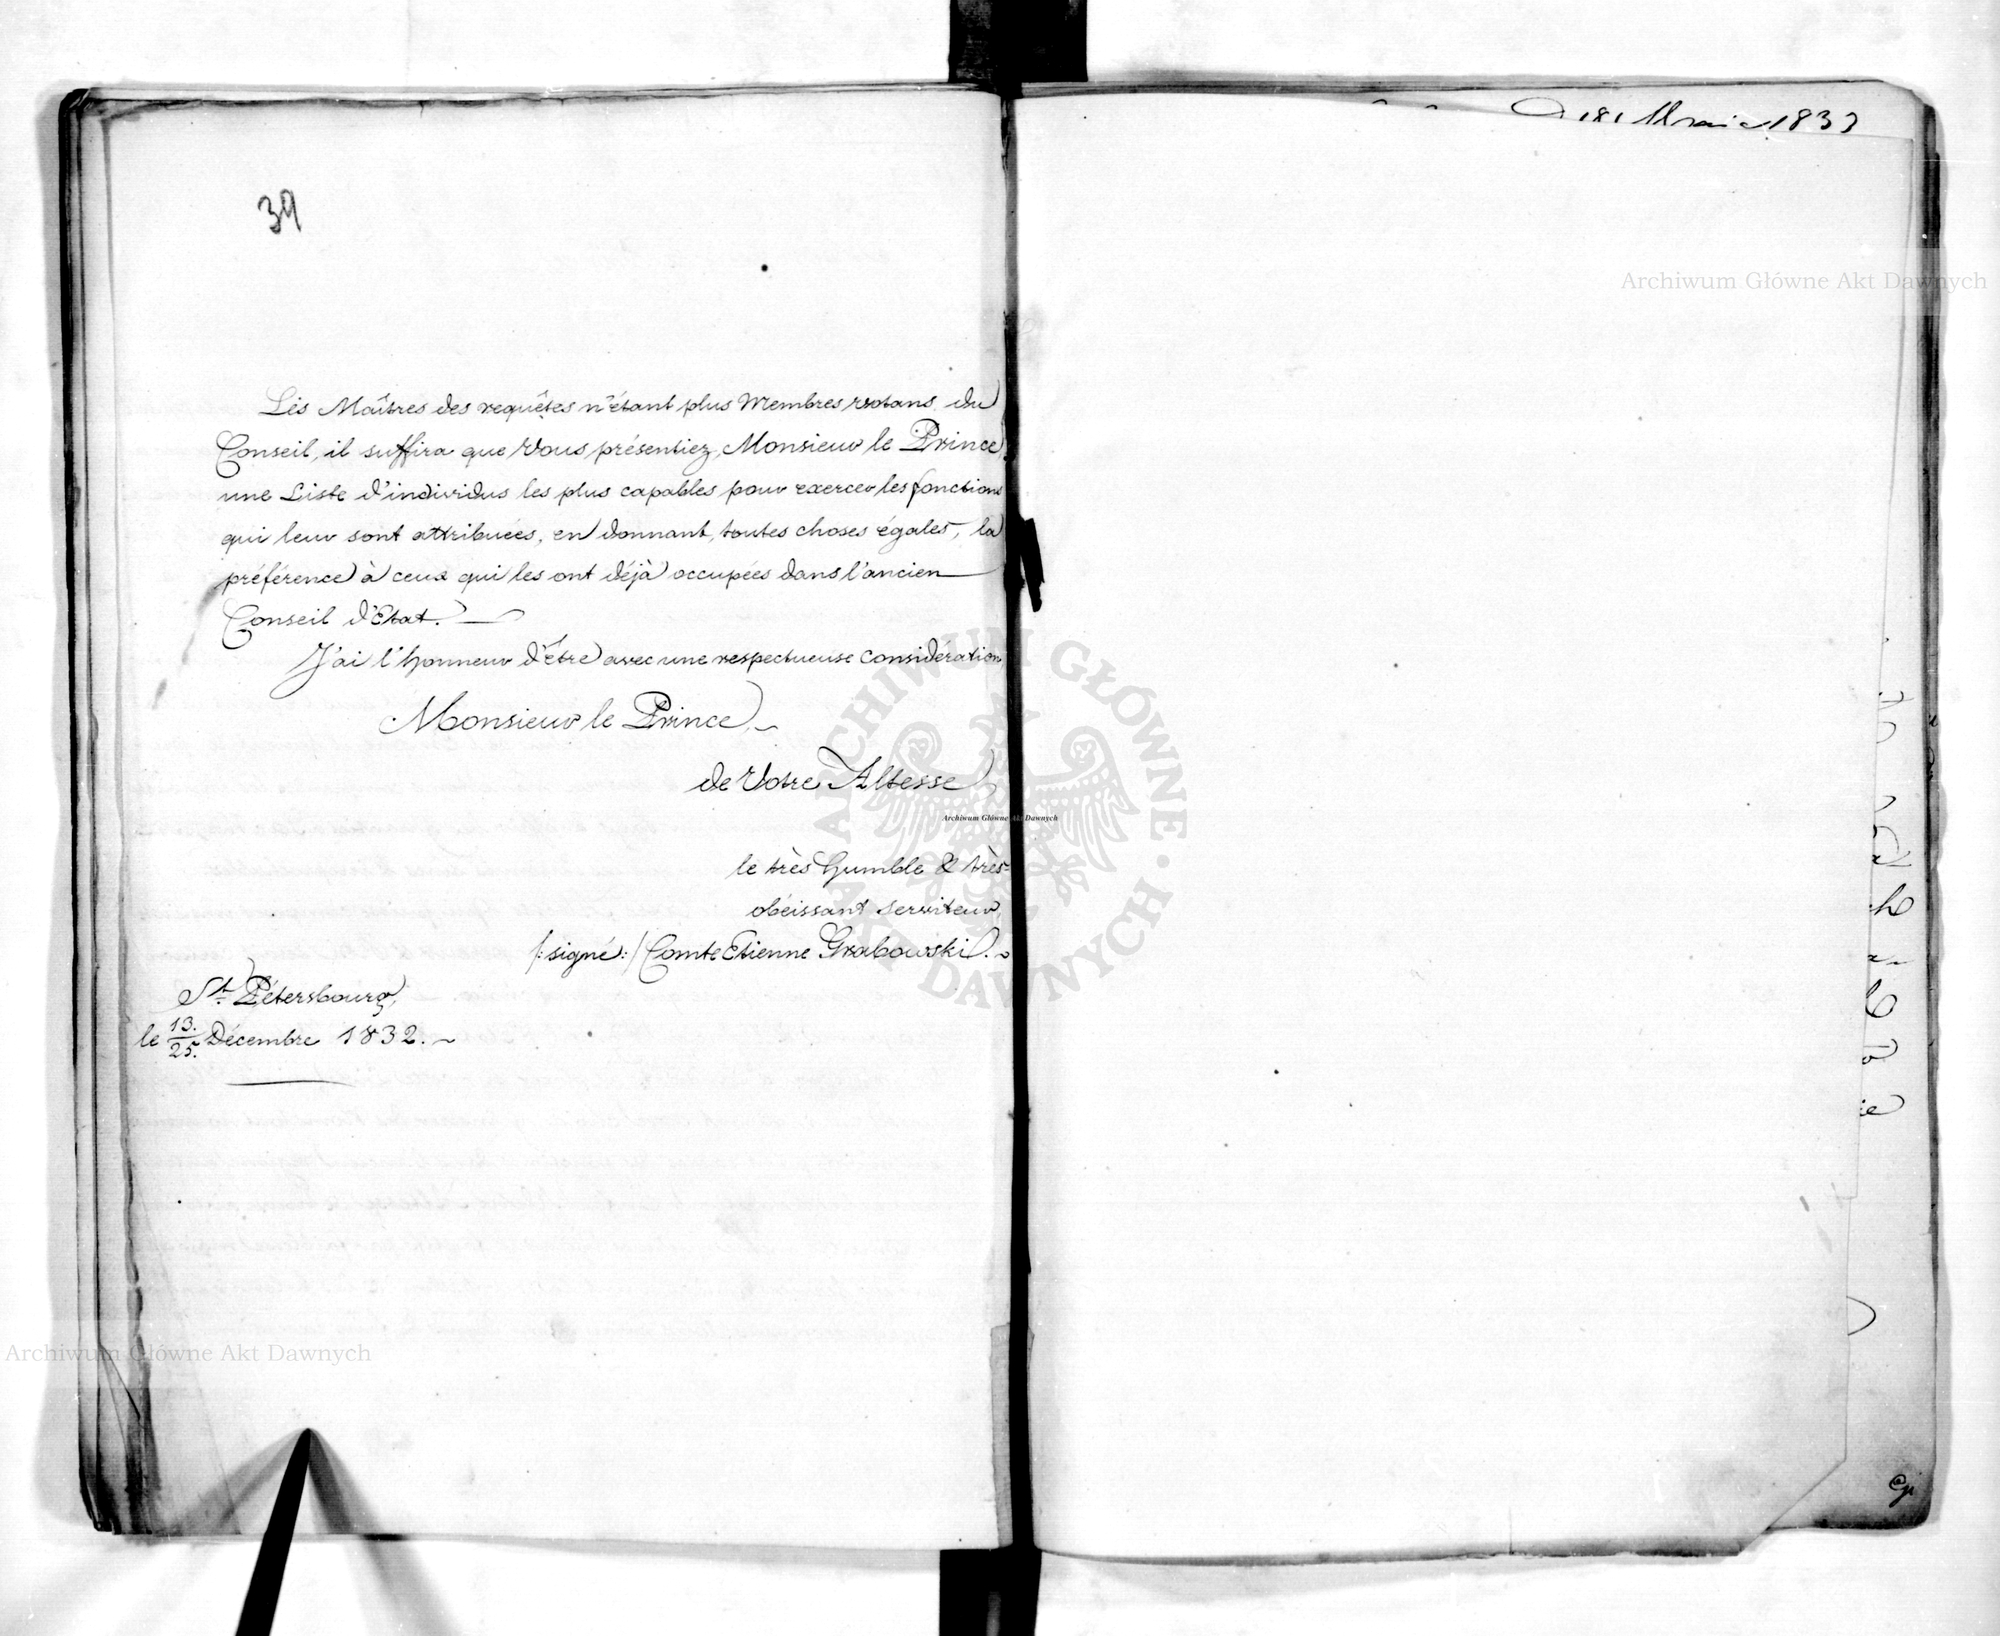 39
Les Maîtres des requêtes n'étant plus Membres votans du
Conseil, il suffira que Vous présentiez, Monsieur le Prince,
une Liste d'individus les plus capables pour exercer les fonctions
qui leur sont attribuées, en donnant, toutes choses égales, la
préférence à ceux qui les ont déjà occupées dans l'ancien
Conseil d'Etat.
J'ai l'honneur d'être avec une respectueuse considération
Monsieur le Prince,
de Votre Altesse,
le très humble & très-
obéissant serviteur,
/:signé:/ Comte Etienne Grabowski.
St. Pétersbourg,
le 13./25. Décembre 1832.
Archiwum Główne Akt Dawnych
1833
Archiwum Główne Akt Dawnych
ARCHIWUM GŁÓWNE · AKT DAWNYCH ·
Archiwum Główne Akt Dawnych